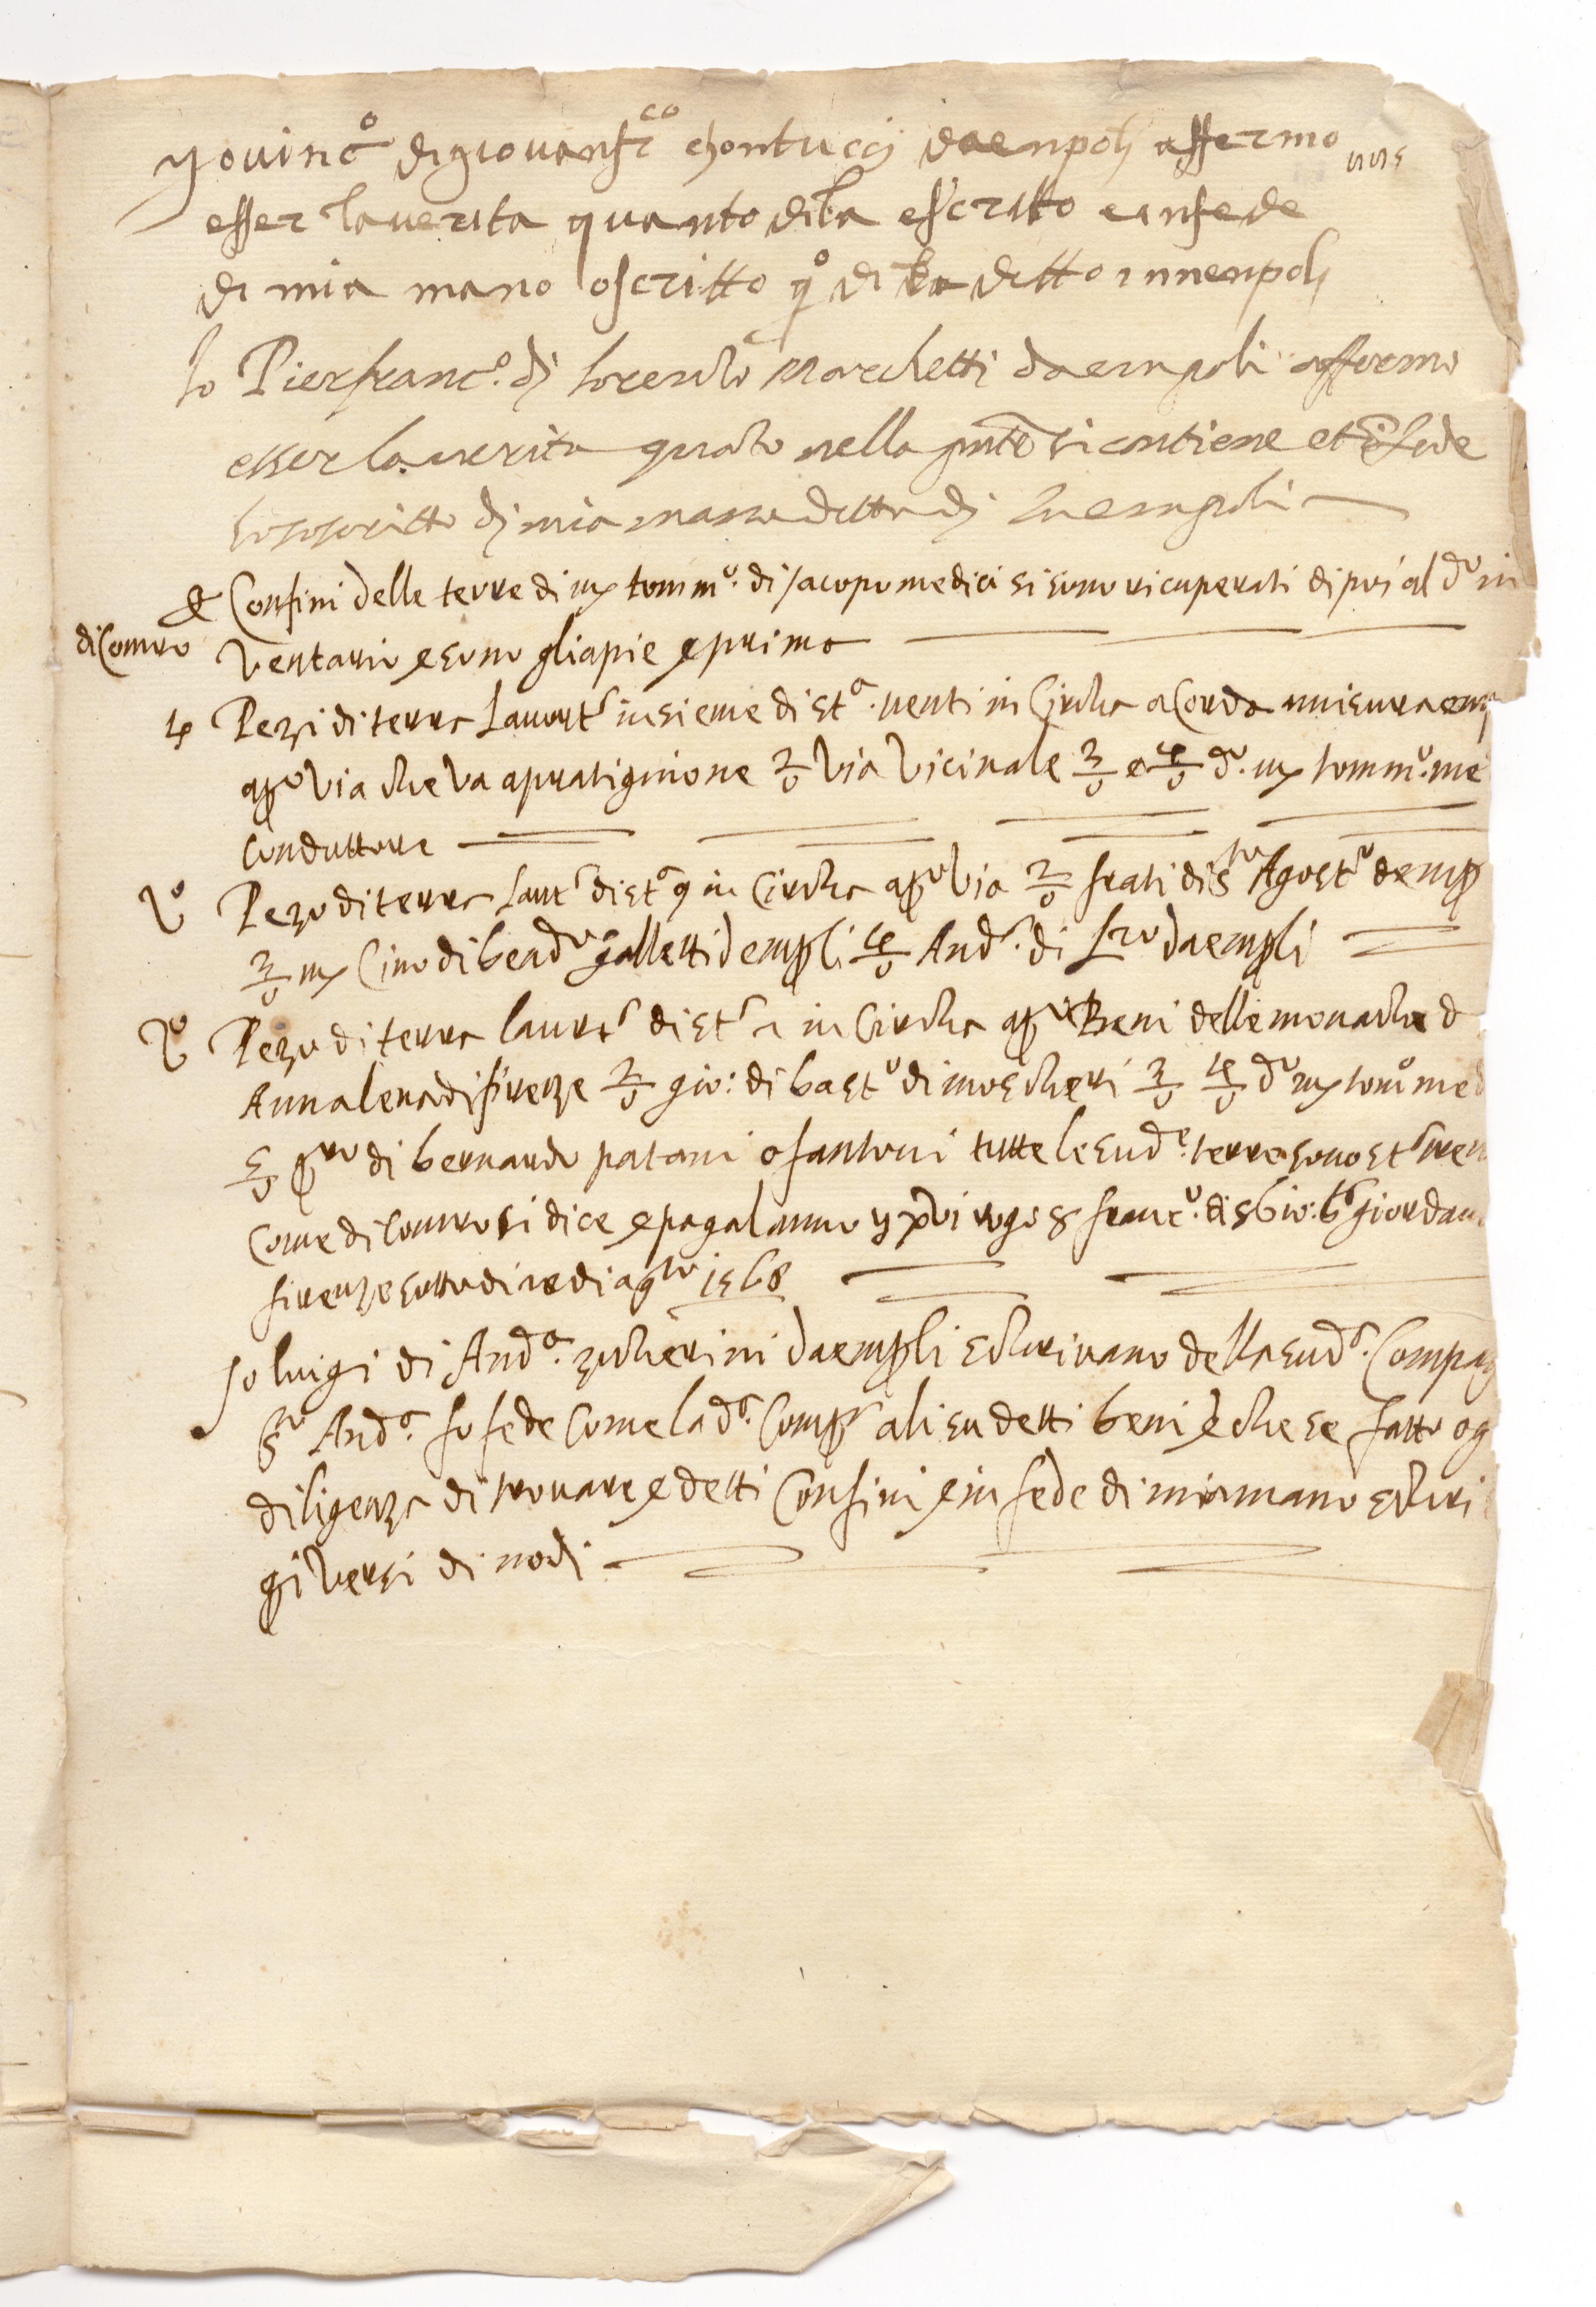 yo vincº di giovanfrco chontucci da enpoli affermo
esser la verita quanto di la escritto e in fede
di mia mano o scritto qº di detto in nenpoli
Io Pierfrancº. di Lorenzo Marchetti da empoli affermo
esser la verita quanto nella pnte si contiene et i fede
ho soscritto di mia mano detto di in empoli
& Confini delle terre di mº tommº. di Jacopo medici si sono ricuperati di poi al dº in
di contro
ventario e sono gli apie e prima
4 Pezi di terra Lavortª insieme di stª. venti in Circha a Corda misura emp
apº via che va a pratignone 2/o via vicinale 3/o e 4/o dº. mº tommº. me
conduttore
Vº Pezo di terra Lavtª di stª 9 in Circha apº via 2/o frati di Stº Agostº demp
3/o mº Cino di benedº galletti d empli 4/o Andª. di Lzo da empli
Vº Pezo di terra lavrtª di stª 1 in Circha apº Beni delle monache d
Annalena di firenze 2/o gio: di bastº di moscheri 3/o 4/o dº mº tomº med
5/o pro di bernardo patani o fantoni tutte le sudª. terre sono stª tren
come di contro si dice e paga l anno rogo s francº. di s Gio: bª giordani
firenze sotto di di agto 1568
Io luigi di Andª. zucherini da empli schrivano della sudª. Compag
Sto Andª. fo fede come la dª. Compª a li sudetti beni e che se fatto og
diligenza di trovare e detti Confini e in fede di mia mano schri
gi versi di nodi